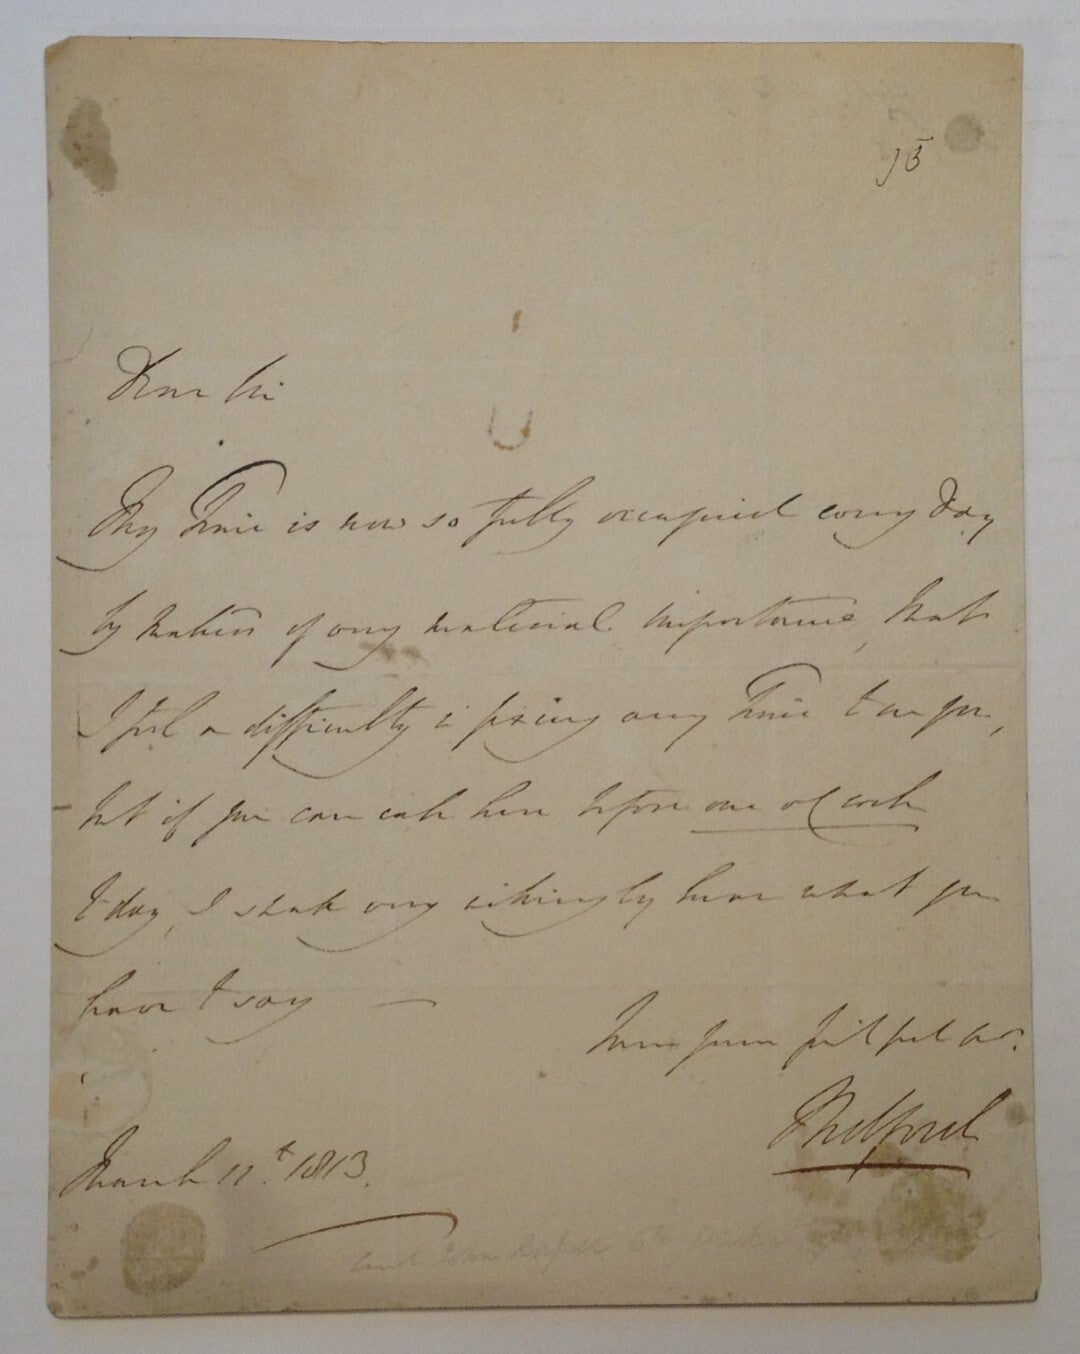 15
Dear Sir
My Time is now so fully occupied every Day
by matters of very material importance, that
I feel a difficulty in fixing any Time to see you,
but if you can call here before one o'clock
to day, I shall very willingly hear what you
have to say —
Bedford
March 11t. 1813.
John Russell 6th